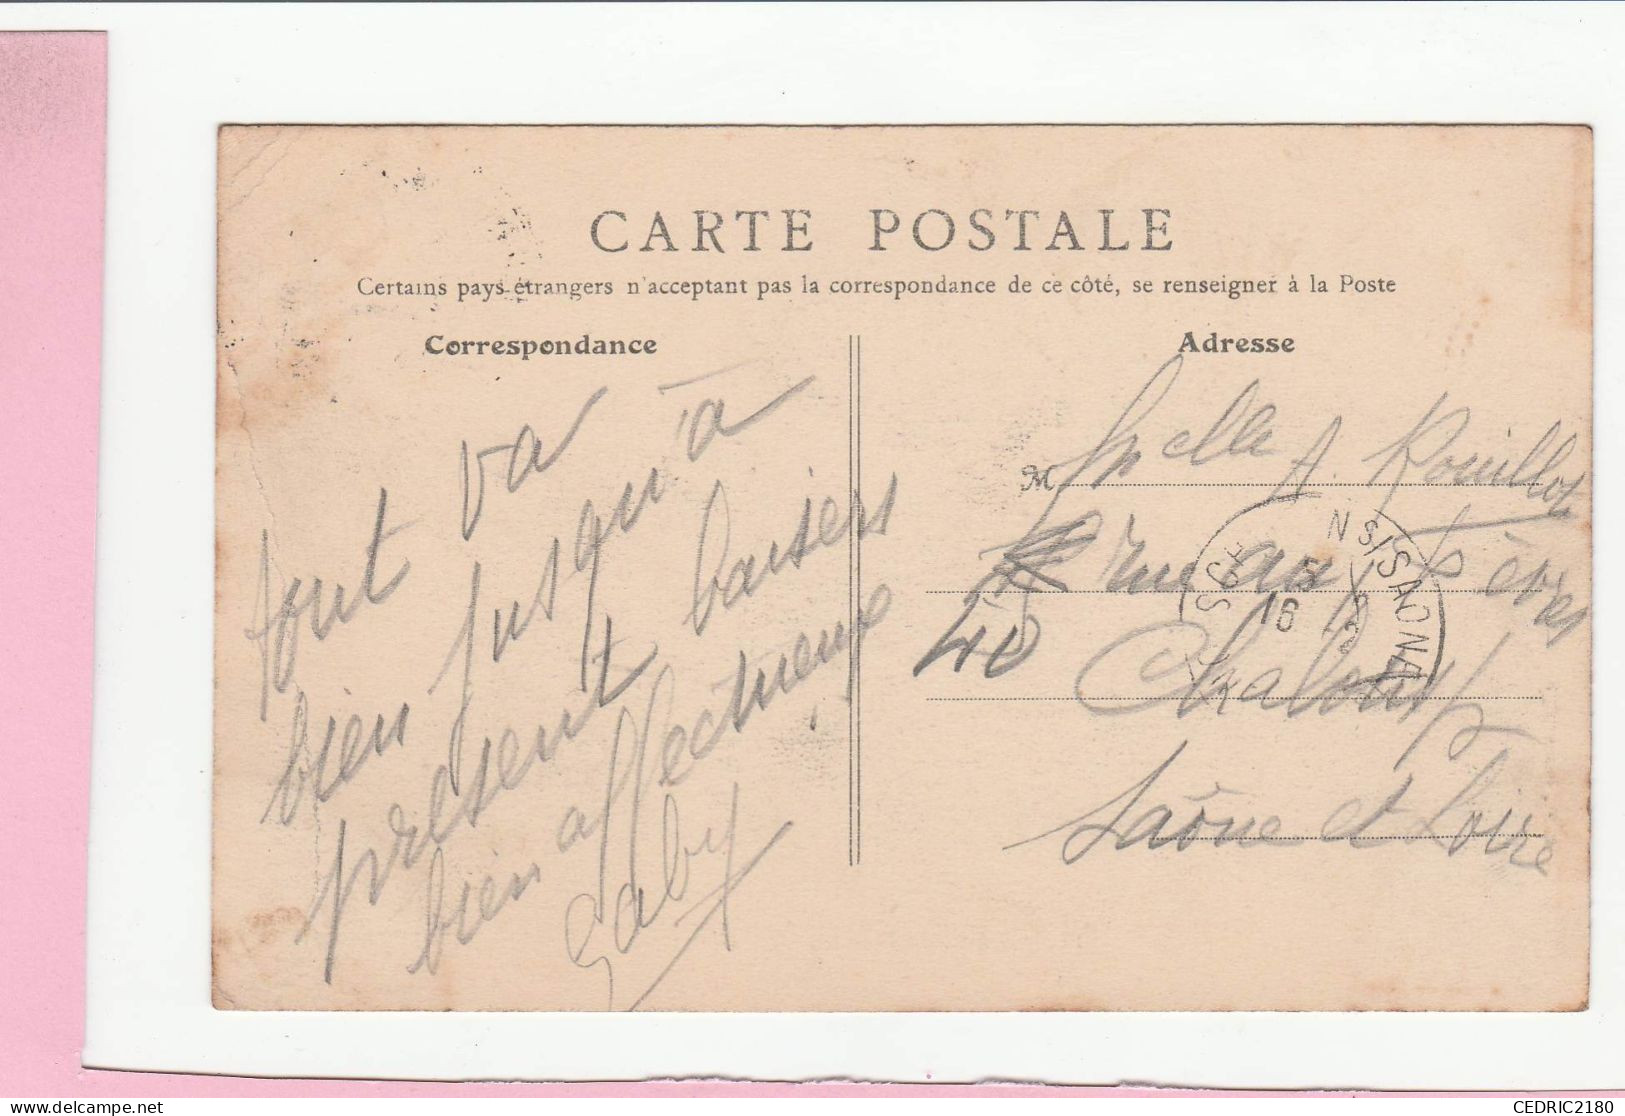 CARTE POSTALE
Certains pays étrangers n'acceptant pas la correspondance de ce côté, se renseigner à la Poste
Correspondance
tout va
bien jusqu'à
présent baisers
bien affectueux
Gaby
Adresse
M elle A. Rouillot
40 rue aux Fèvres
Chalon s/
Saône et Loire
16
CEDRIC2180